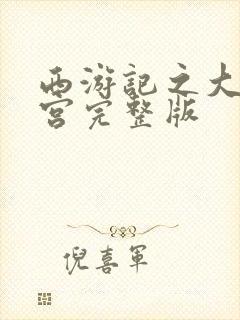 西游记之大
宫完整版
倪喜军